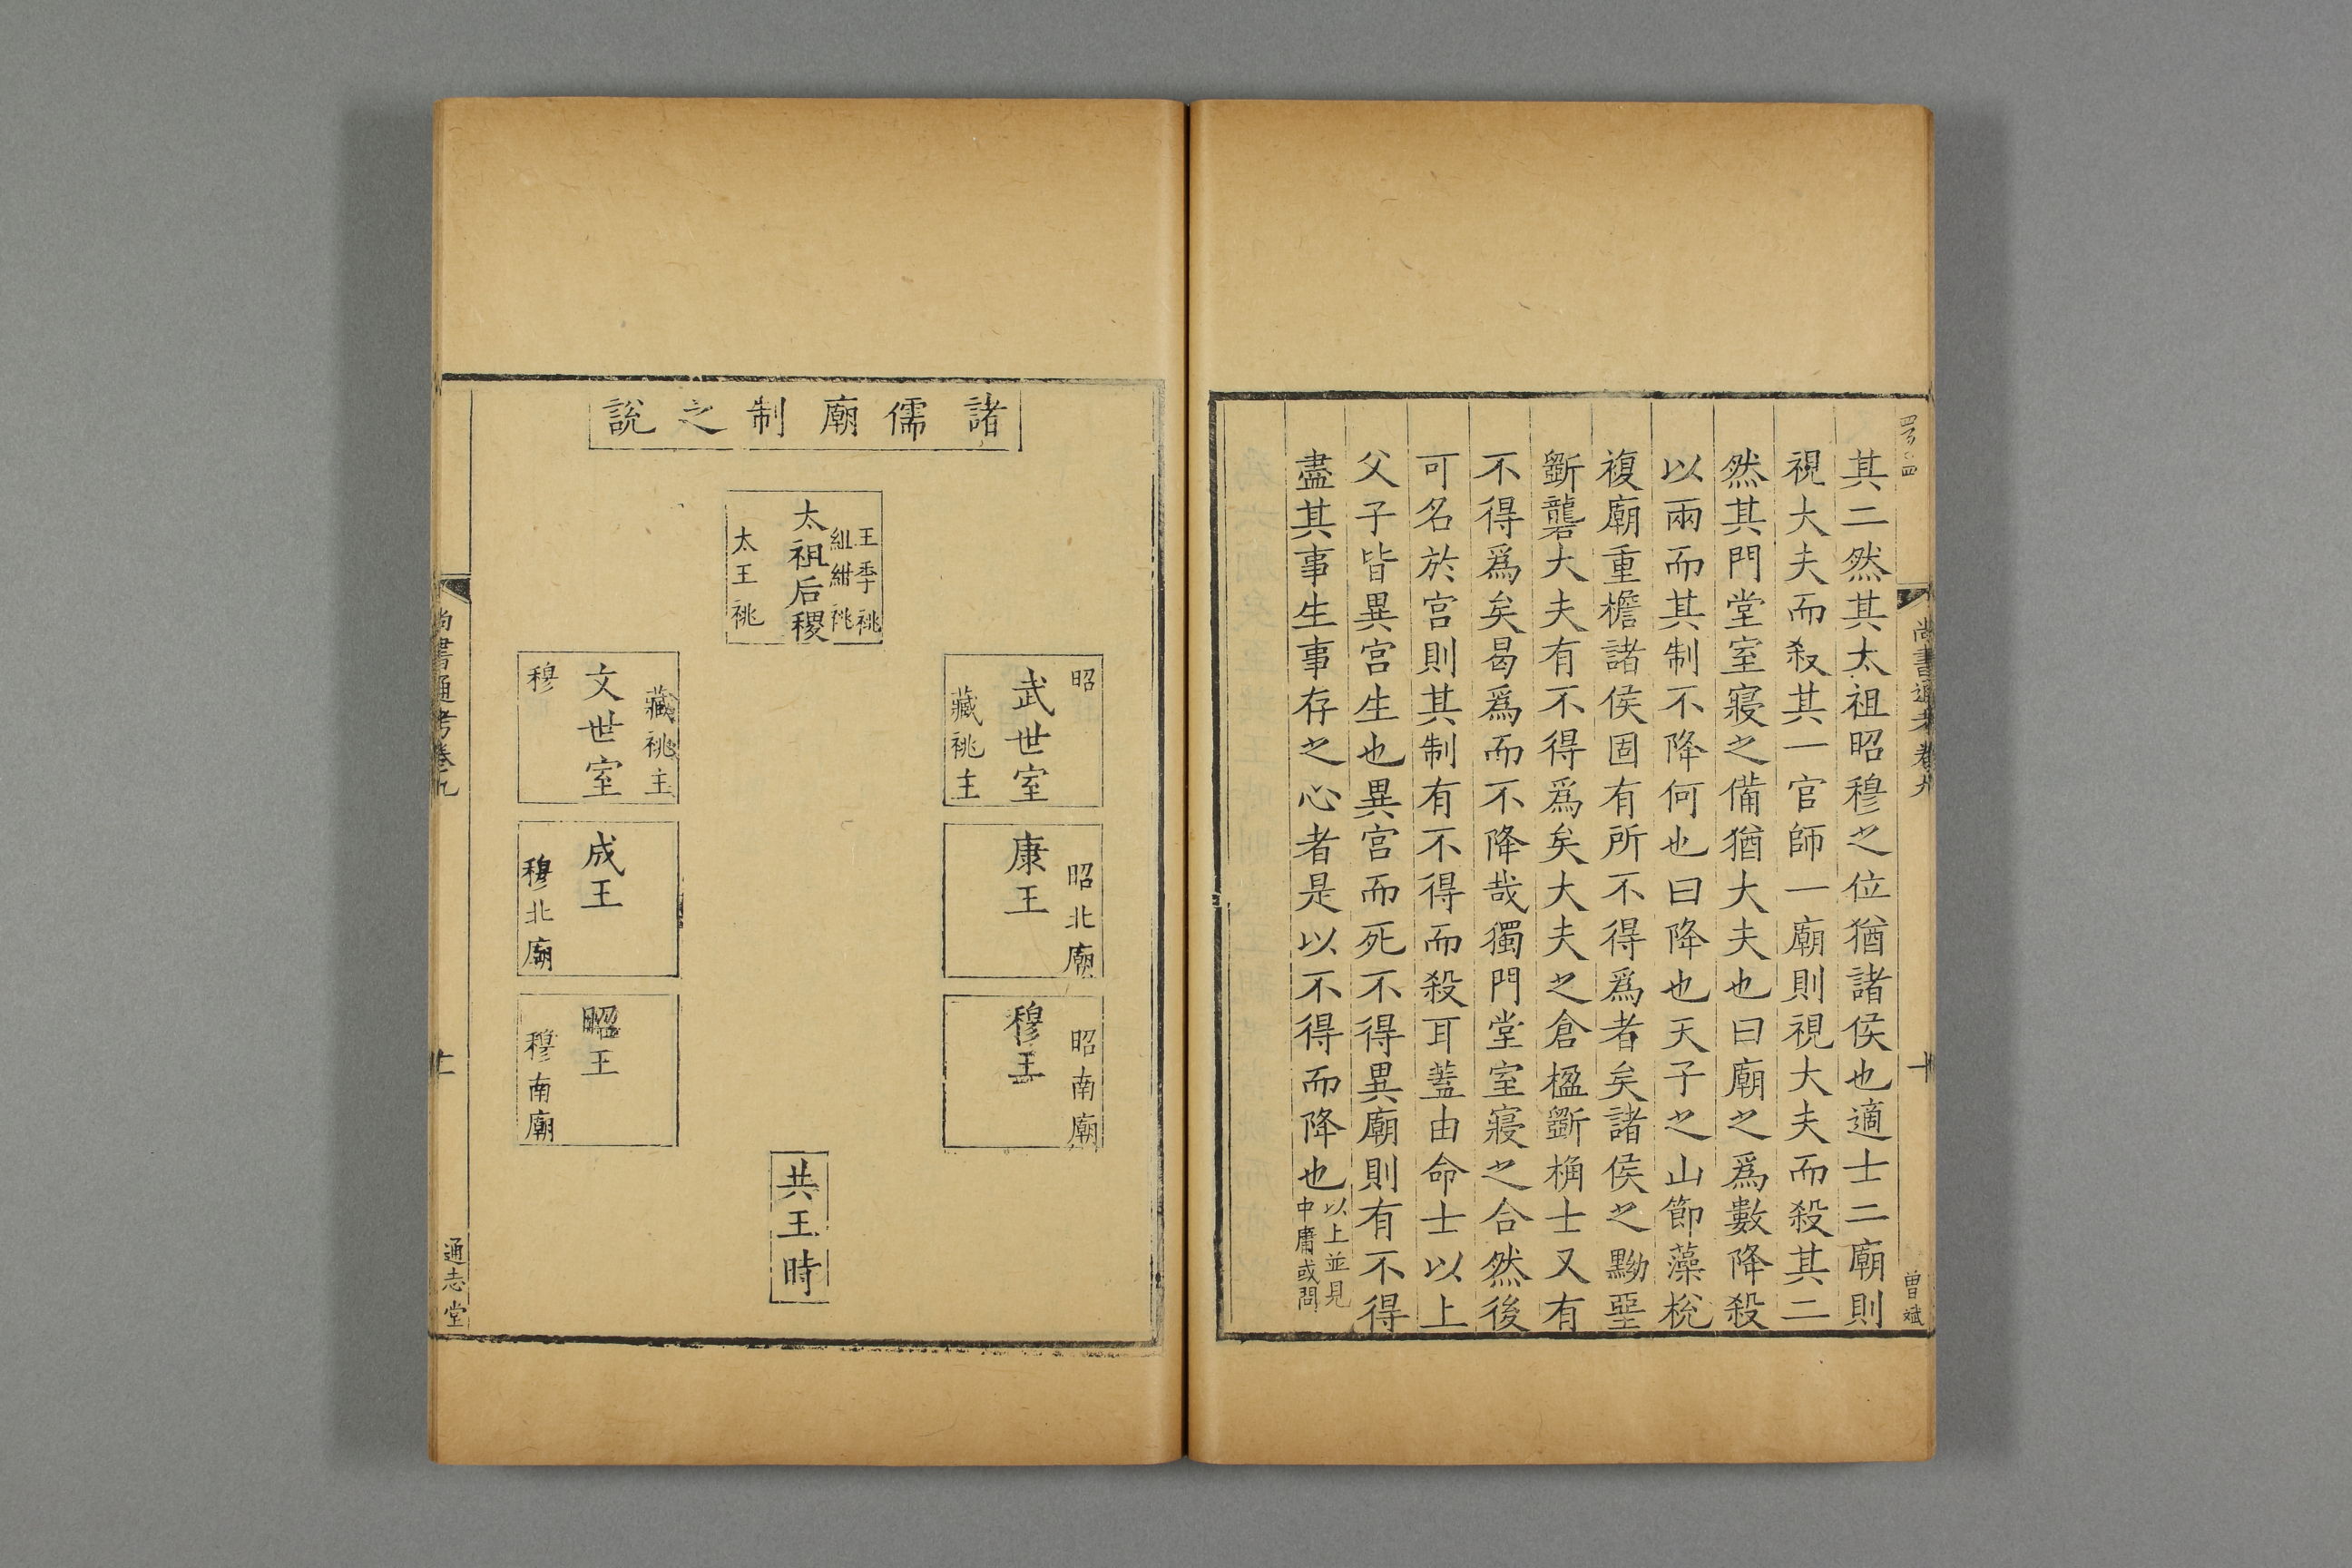 其二然其太祖昭穆之位猶諸侯也適士二廟則
視大夫而殺其一官師一廟則視大夫而殺其二
然其門堂室寢之備猶大夫也曰廟之爲數降殺
以兩而其制不降何也曰降也天子之山節藻梲
複廟重檐諸侯固有所不得爲者矣諸侯之黝堊
斲礱大夫有不得爲矣大夫之倉楹斲桷士又有
不得爲矣曷爲而不降哉獨門堂室寢之合然後
可名於宮則其制有不得而殺耳蓋由命士以上
父子皆異宮生也異宮而死不得異廟則有不得
盡其事生事存之心者是以不得而降也
以上並見
中庸或問
尚書通考卷九
十
曾斌
諸儒廟制之說
王季祧
組紺祧
太祖后稷
太王祧
昭
武世室
藏祧主
昭北廟
康王
昭南廟
穆王
藏祧主
文世室
穆
成王
穆北廟
昭王
穆南廟
共王時
尚書通考卷九
通志堂